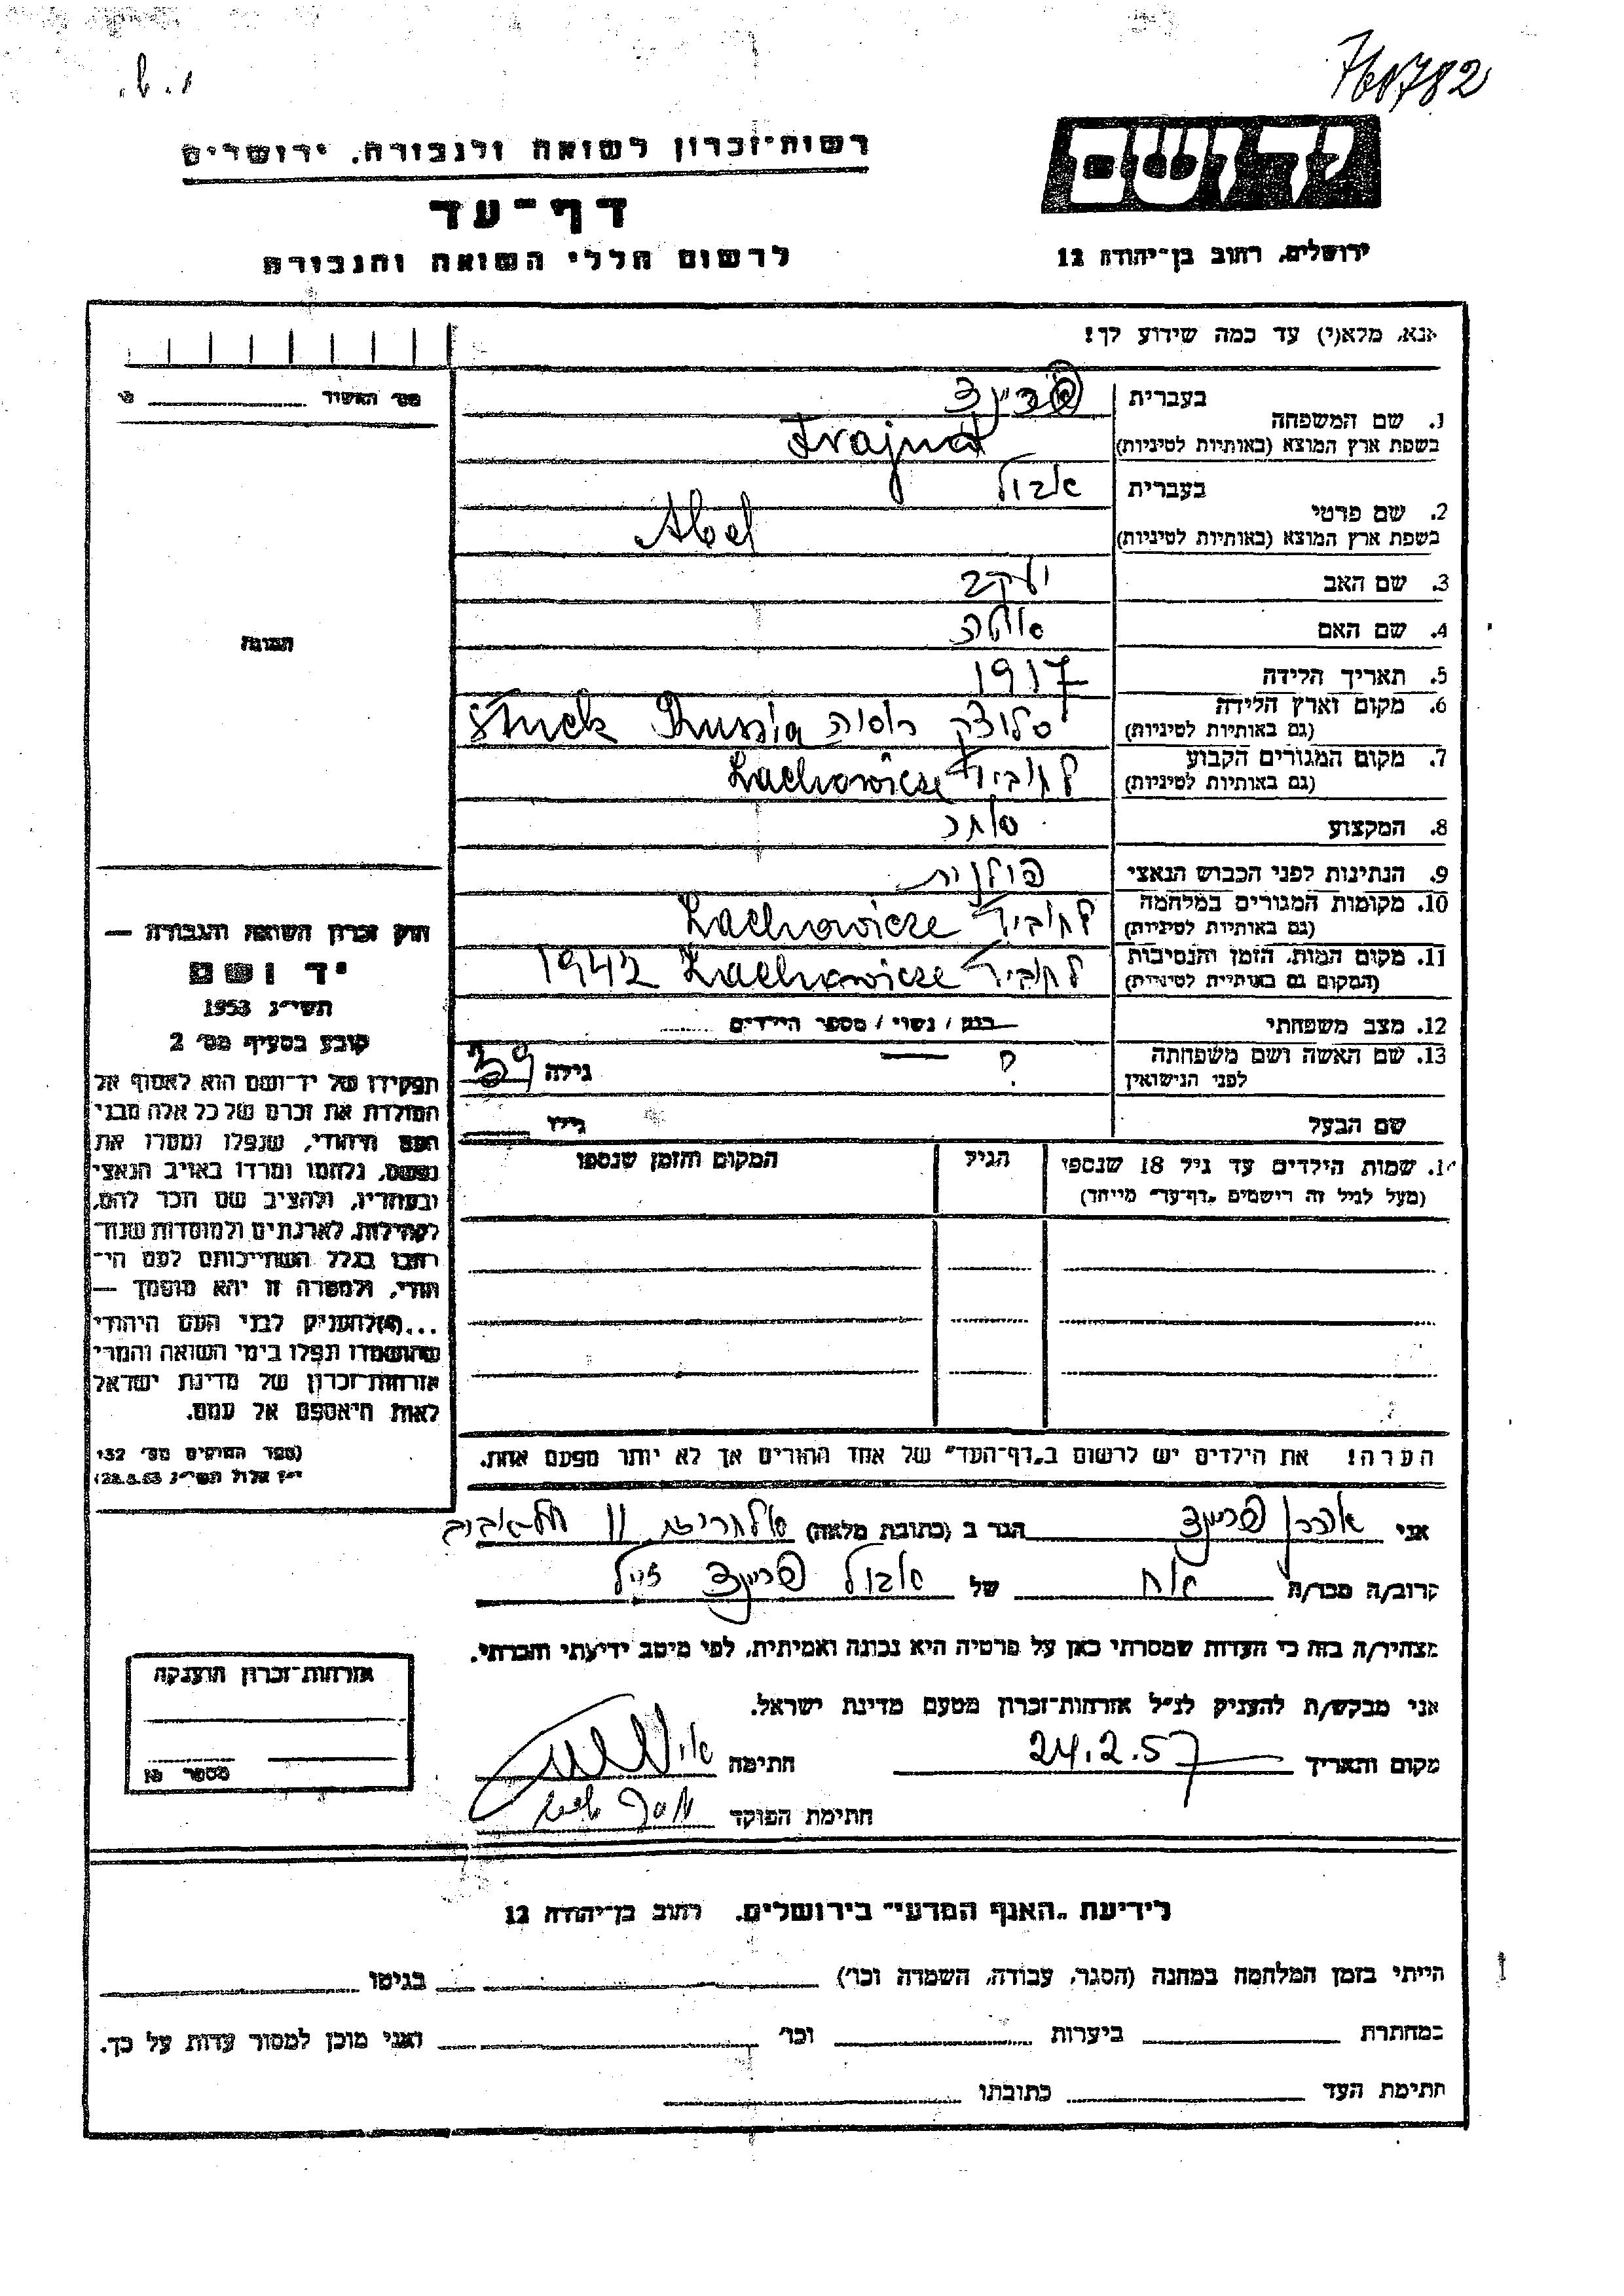 760782
יד ושם
רשות־זכרון לשואה ולגבורה, ירושלים
דף־עד
לרשום חללי השואה והגבורה
ירושלים, רחוב בן־יהודה 12
אנא, מלא(י) עד כמה שידוע לך!
מס׳ האשור
1. שם המשפחה בעברית פריינד
בשפת ארץ המוצא (באותיות לטיניות) Frajnd
2. שם פרטי בעברית אבול
בשפת ארץ המוצא (באותיות לטיניות) Abel
3. שם האב יעקב
4. שם האם
5. תאריך הלידה 1917
6. מקום וארץ הלידה (גם באותיות לטיניות) סלוצק רוסיה Russia
7. מקום המגורים הקבוע (גם באותיות לטיניות) לחוביץ Lachowicze
8. המקצוע סוחר
9. הנתינות לפני הכבוש הנאצי פולנית
10. מקומות המגורים במלחמה (גם באותיות לטיניות) לחוביץ Lachowicze
11. מקום המות, הזמן והנסיבות (המקום גם באותיות לטיניות) לחוביץ Lachowicze 1942
12. מצב משפחתי רווק / נשוי / מספר הילדים
13. שם האשה ושם משפחתה לפני הנישואין ? גילה 39
שם הבעל גילו
14. שמות הילדים עד גיל 18 שנספו
(מעל לגיל זה רישמים „דף־עד” מייחד)
הגיל
המקום והזמן שנספו
הערה! את הילדים יש לרשום ב„דף־העד” של אחד ההורים אך לא יותר מפעם אחת.
התמונה
חוק זכרון השואה והגבורה —
יד ושם
תשי״ג 1953
קובע בסעיף מס׳ 2
תפקידו של יד־ושם הוא לאסוף אל
המולדת את זכרם של כל אלה מבני
העם היהודי, שנפלו ומסרו את
נפשם, נלחמו ומרדו באויב הנאצי
ובעוזריו, ולהציב שם וזכר להם,
לקהילות, לארגונים ולמוסדות שנח־
רבו בגלל השתייכותם לעם הי־
הודי, ולמטרה זו יהא מוסמך —
...(4) להעניק לבני העם היהודי
שהושמדו ונפלו בימי השואה והמרי
אזרחות־זכרון של מדינת ישראל
לאות היאספם אל עמם.
(ספר החוקים מס׳ 132
י״ז אלול תשי״ג 28.8.53)
אני פריינד הגר ב (כתובת מלאה) 11
קרוב/ה מכר/ה אח של אבול פריינד ז״ל
מצהיר/ה בזה כי העדות שמסרתי כאן על פרטיה היא נכונה ואמיתית, לפי מיטב ידיעתי והכרתי.
אני מבקש/ת להעניק לנ״ל אזרחות־זכרון מטעם מדינת ישראל.
מקום ותאריך 24.2.57 חתימה
חתימת הפוקד
אזרחות־זכרון הוענקה
מספר
לידיעת „האגף המדעי” בירושלים, רחוב בן־יהודה 12
הייתי בזמן המלחמה במחנה (הסגר, עבודה, השמדה וכו׳) בגיטו
במחתרת ביערות וכו׳ ואני מוכן למסור עדות על כך.
חתימת העד כתובתו